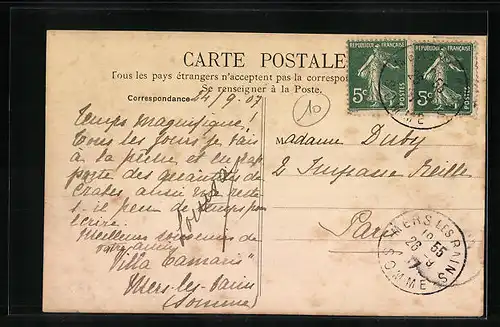 CARTE POSTALE
Tous les pays étrangers n'acceptent pas la correspo
Se renseigner à la Poste.
REPUBLIQUE FRANÇAISE
5c
POSTES
REPUBLIQUE FRANÇAISE
5c
POSTES
Correspondance
24/9.07
10
Temps magnifique!
Tous les jours je vais
à la pêche et
des quantités de
crabes aussi me reste
t-il peu de temps pour
écrire.
Meilleurs souvenirs de
votre amie
Louise
"Villa Tamaris"
Mers-les-Bains
(Somme)
Madame Duby
2 Impasse Reille
Paris
MERS LES BAINS
SOMME